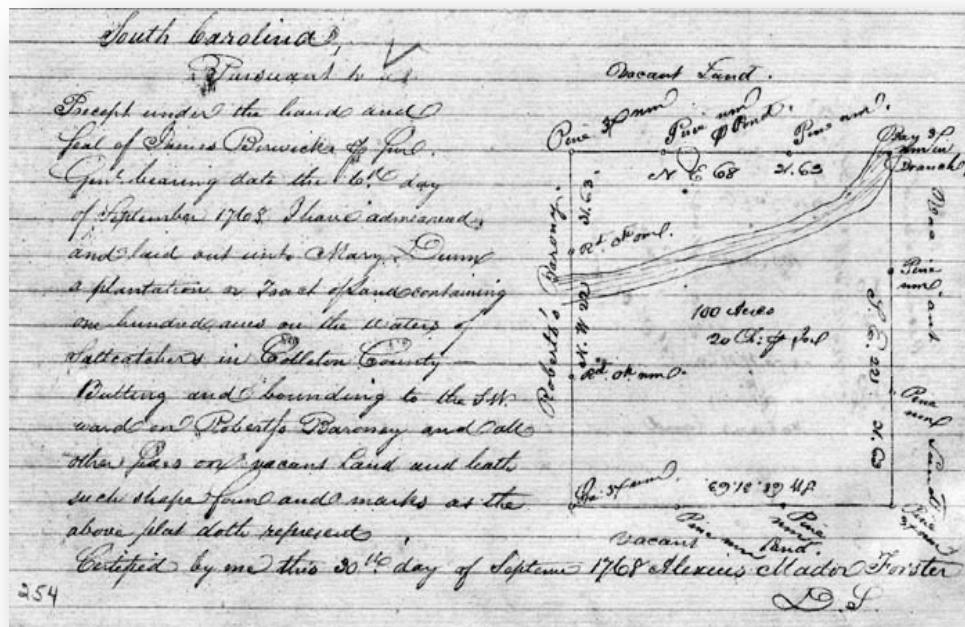 South Carolina,
Pursuant to a
Precept under the hand and
Seal of James Berwicke
Genl. bearing date the 6th day
of September 1768 I have admeasured
and laid out unto Mary Dunn
a plantation or Tract of Land containing
one hundred acres on the waters of
Saltcatchers in Colleton County
Butting and bounding to the SW.
ward on Roberts Baroney and all
other sides on vacant Land and hath
such shape form and marks as the
above plat doth represent
Certified by me this 30th day of Septem 1768 Alexius Mador Forster
D. S.
254
Vacant Land.
Pine 3x nm
Pine nm
Pond.
Pine nm.
Bay 3x
nm in
Branch
N E 68 31.63
Robert's Barony.
N. W 22 31.63.
Rd. ok nm.
Rd. ok nm.
100 Acres
20 Ch: Inch
S. E. 22 31.63
Pine
nm
Pine
nm
Vacant Land
Pine
3x nm
Pine 3x nm.
S W 68. 31.63
Pine nm
Pine
nm
Vacant Land.